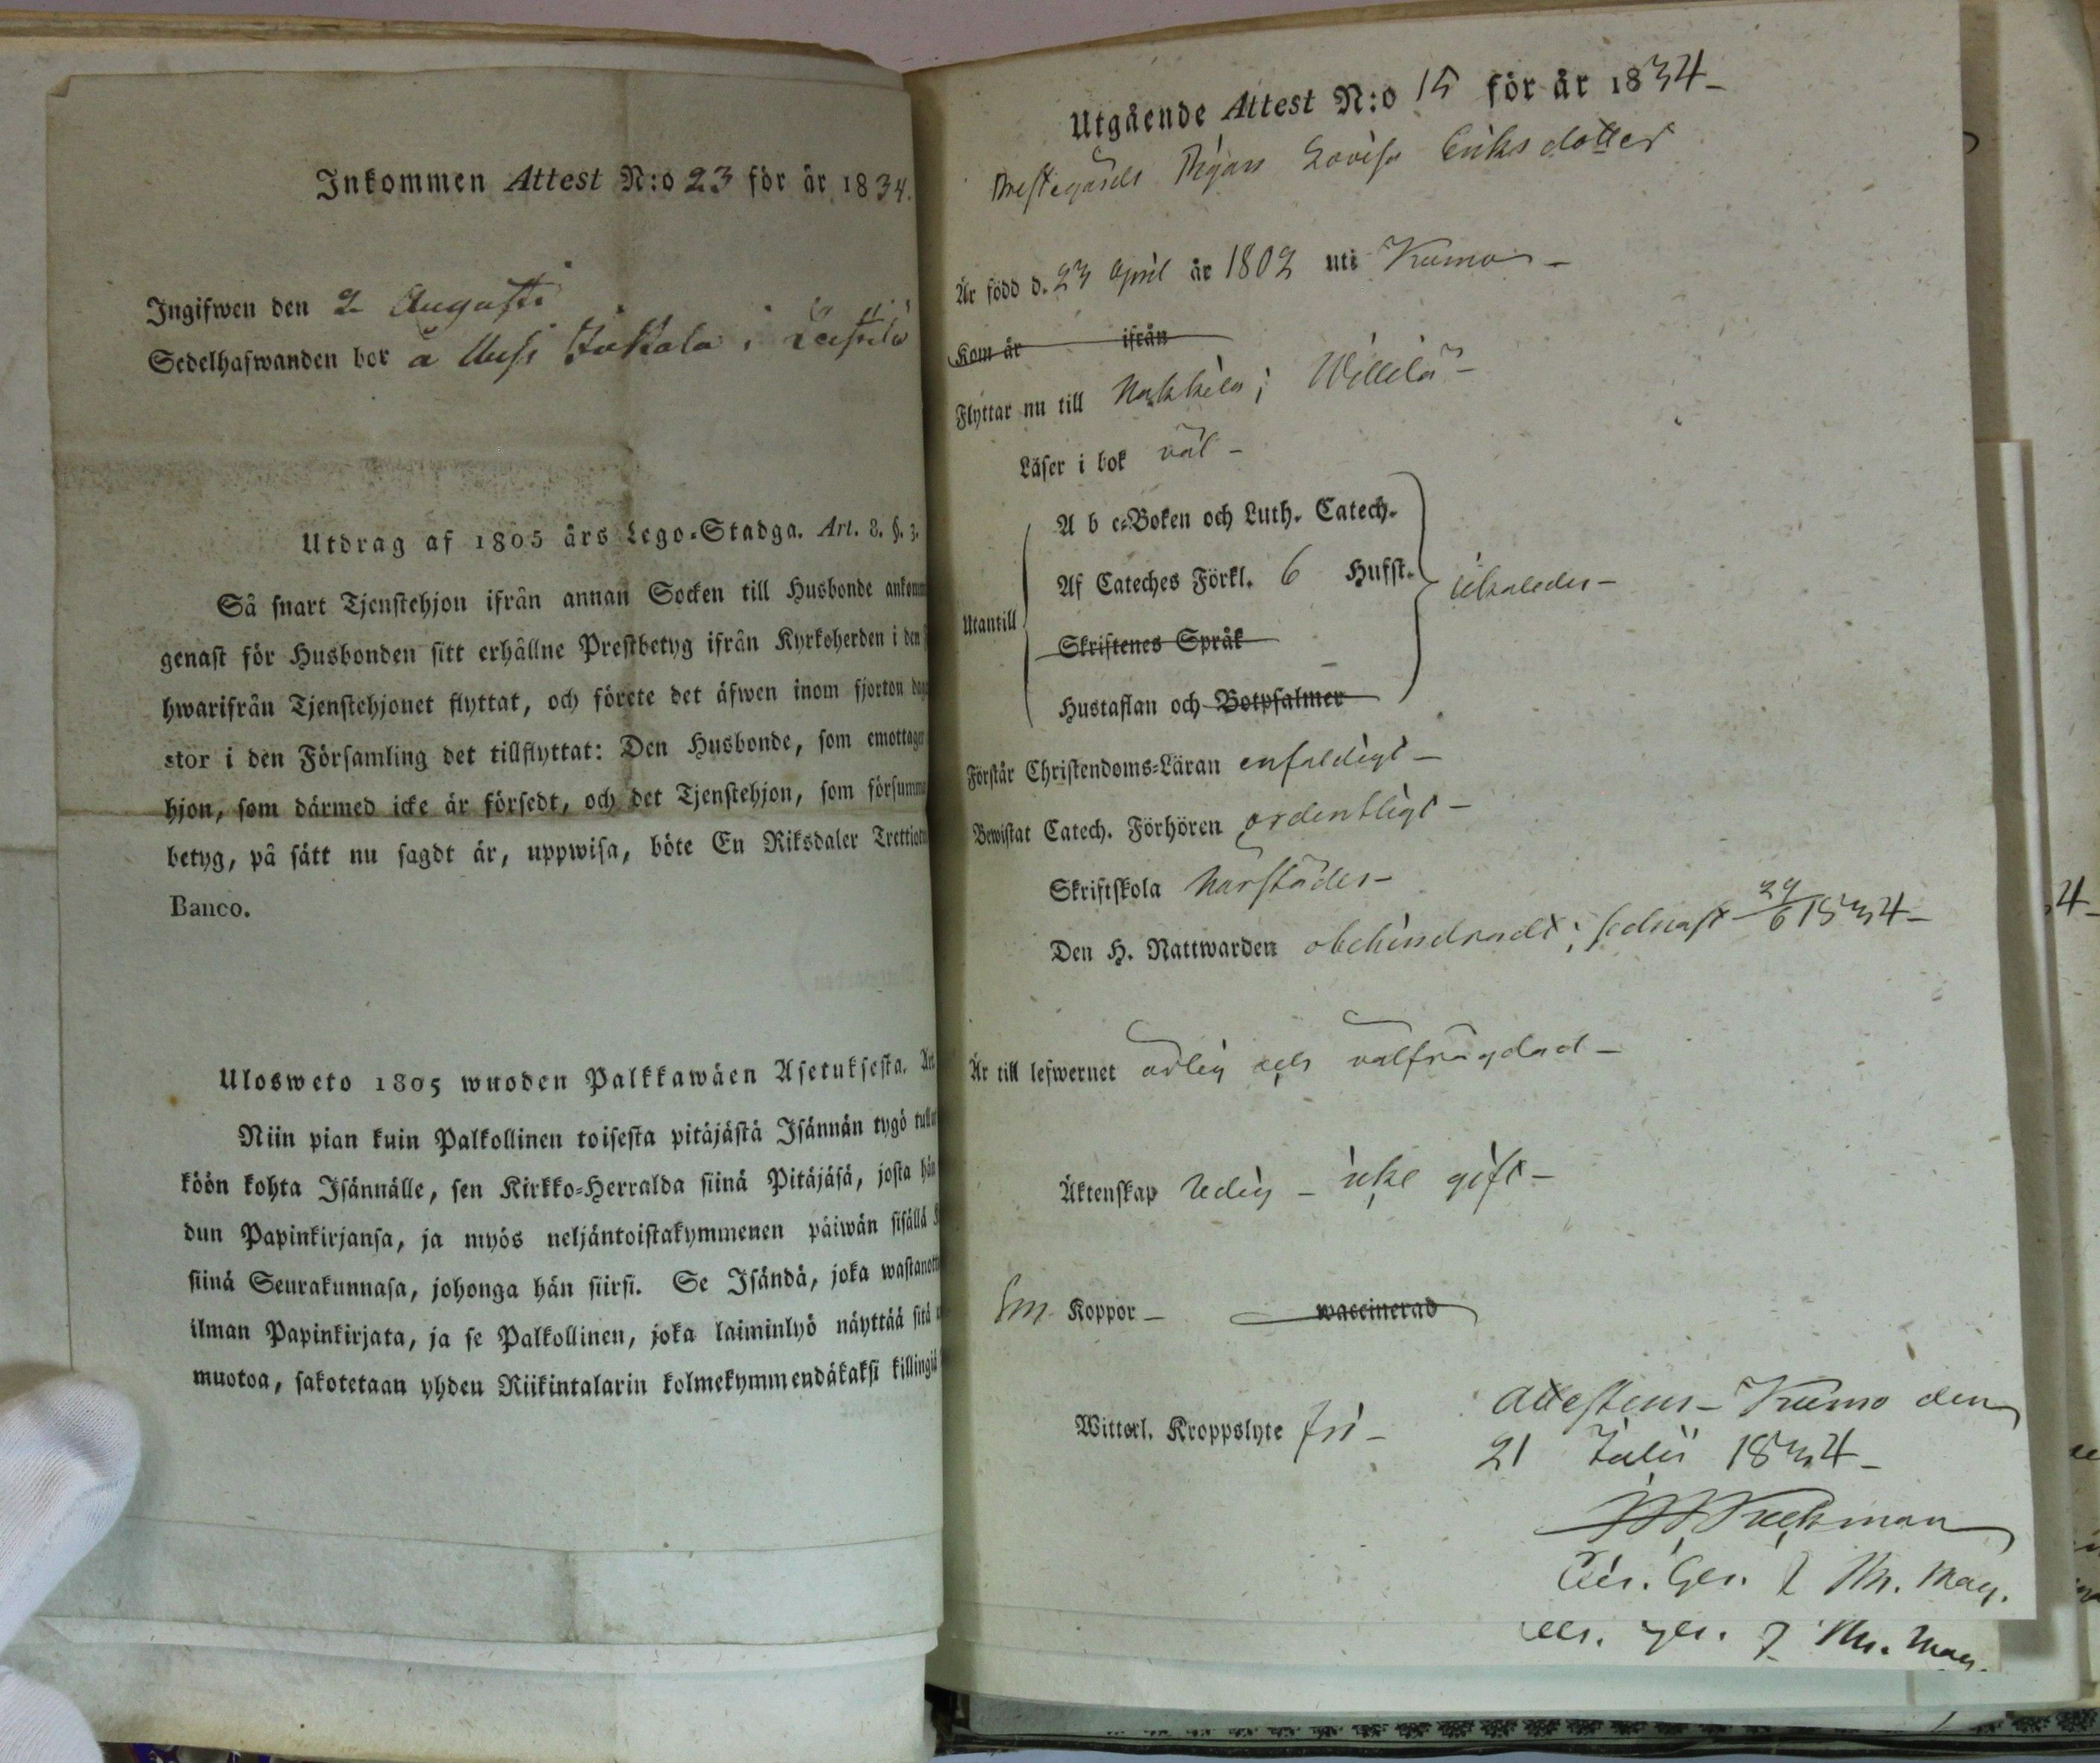 Inkommen Attest N:o 23 för år 1834.
Ingifwen den 2 Augusti
Sedelhafwanden bor å Uusi Jukola i Leistilä
Utdrag af 1805 års Lego-Stadga. Art. 8. §. 3.
Så snart Tjenstehjon ifrån annan Socken till Husbonde ankomm
genast för Husbonden sitt erhållne Prestbetyg ifrån Kyrkoherden i den
hwarifrån Tjenstehjonet flyttat, och förete det äfwen inom fjorton dag
stor i den Församling det tillflyttat: Den Husbonde, som emottager
hjon, som därmed icke är försedt, och det Tjenstehjon, som försumm
betyg, på sätt nu sagdt är, uppwisa, böte En Riksdaler Trettio
Banco.
Ulosweto 1805 wuoden Palkkawäen Asetuksesta. Art
Niin pian kuin Palkollinen toisesta pitäjästä Isännän tygö tull
köön kohta Isännälle, sen Kirkko-Herralda siinä Pitäjäsä, josta hän
dun Papinkirjansa, ja myös neljäntoistakymmenen päiwän sisällä
siinä Seurakunnasa, johonga hän siirsi. Se Isändä, joka wastanott
ilman Papinkirjata, ja se Palkollinen, joka laiminlyö näyttää sitä
muotoa, sakotetaan yhden Riikintalarin kolmekymmendäkaksi killingiä
Utgående Attest N:o 15 för år 1834-
Prestegårds Pigan Lovisa Eriksdotter
Är född d. 23 April år 1802 uti Kumo-
Kom år ifrån
Flyttar nu till Nakkila; Willilä-
Läser i bok väl-
A b c-Boken och Luth. Catech.
Af Cateches Förkl. 6 Hufst.
Utantill
Skriftenes Språk
Hustaflan och Botpsalmer
Förstår Christendoms-Läran enfaldigt-
Bewistat Catech. Förhören ordentligt-
Skriftskola härstädes-
Den H. Nattwarden obehindradt; sednast 29/6 1834-
Är till lefwernet ärlig och välfrägdad-
Äktenskap ledig - icke gift-
Koppor- waccinerad
Witterl. Kroppslyte fri-
Attesteras- Kumo den
21 Julii 1834-